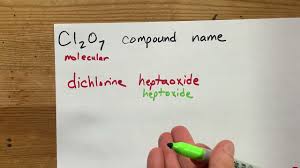 Cl₂O₇ compound name
molecular
dichlorine heptaoxide
heptoxide